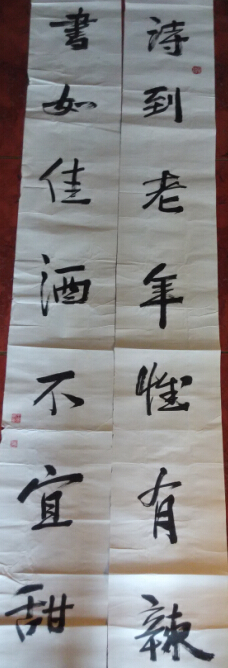 詩到老年惟有辣
書如佳酒不宜甜